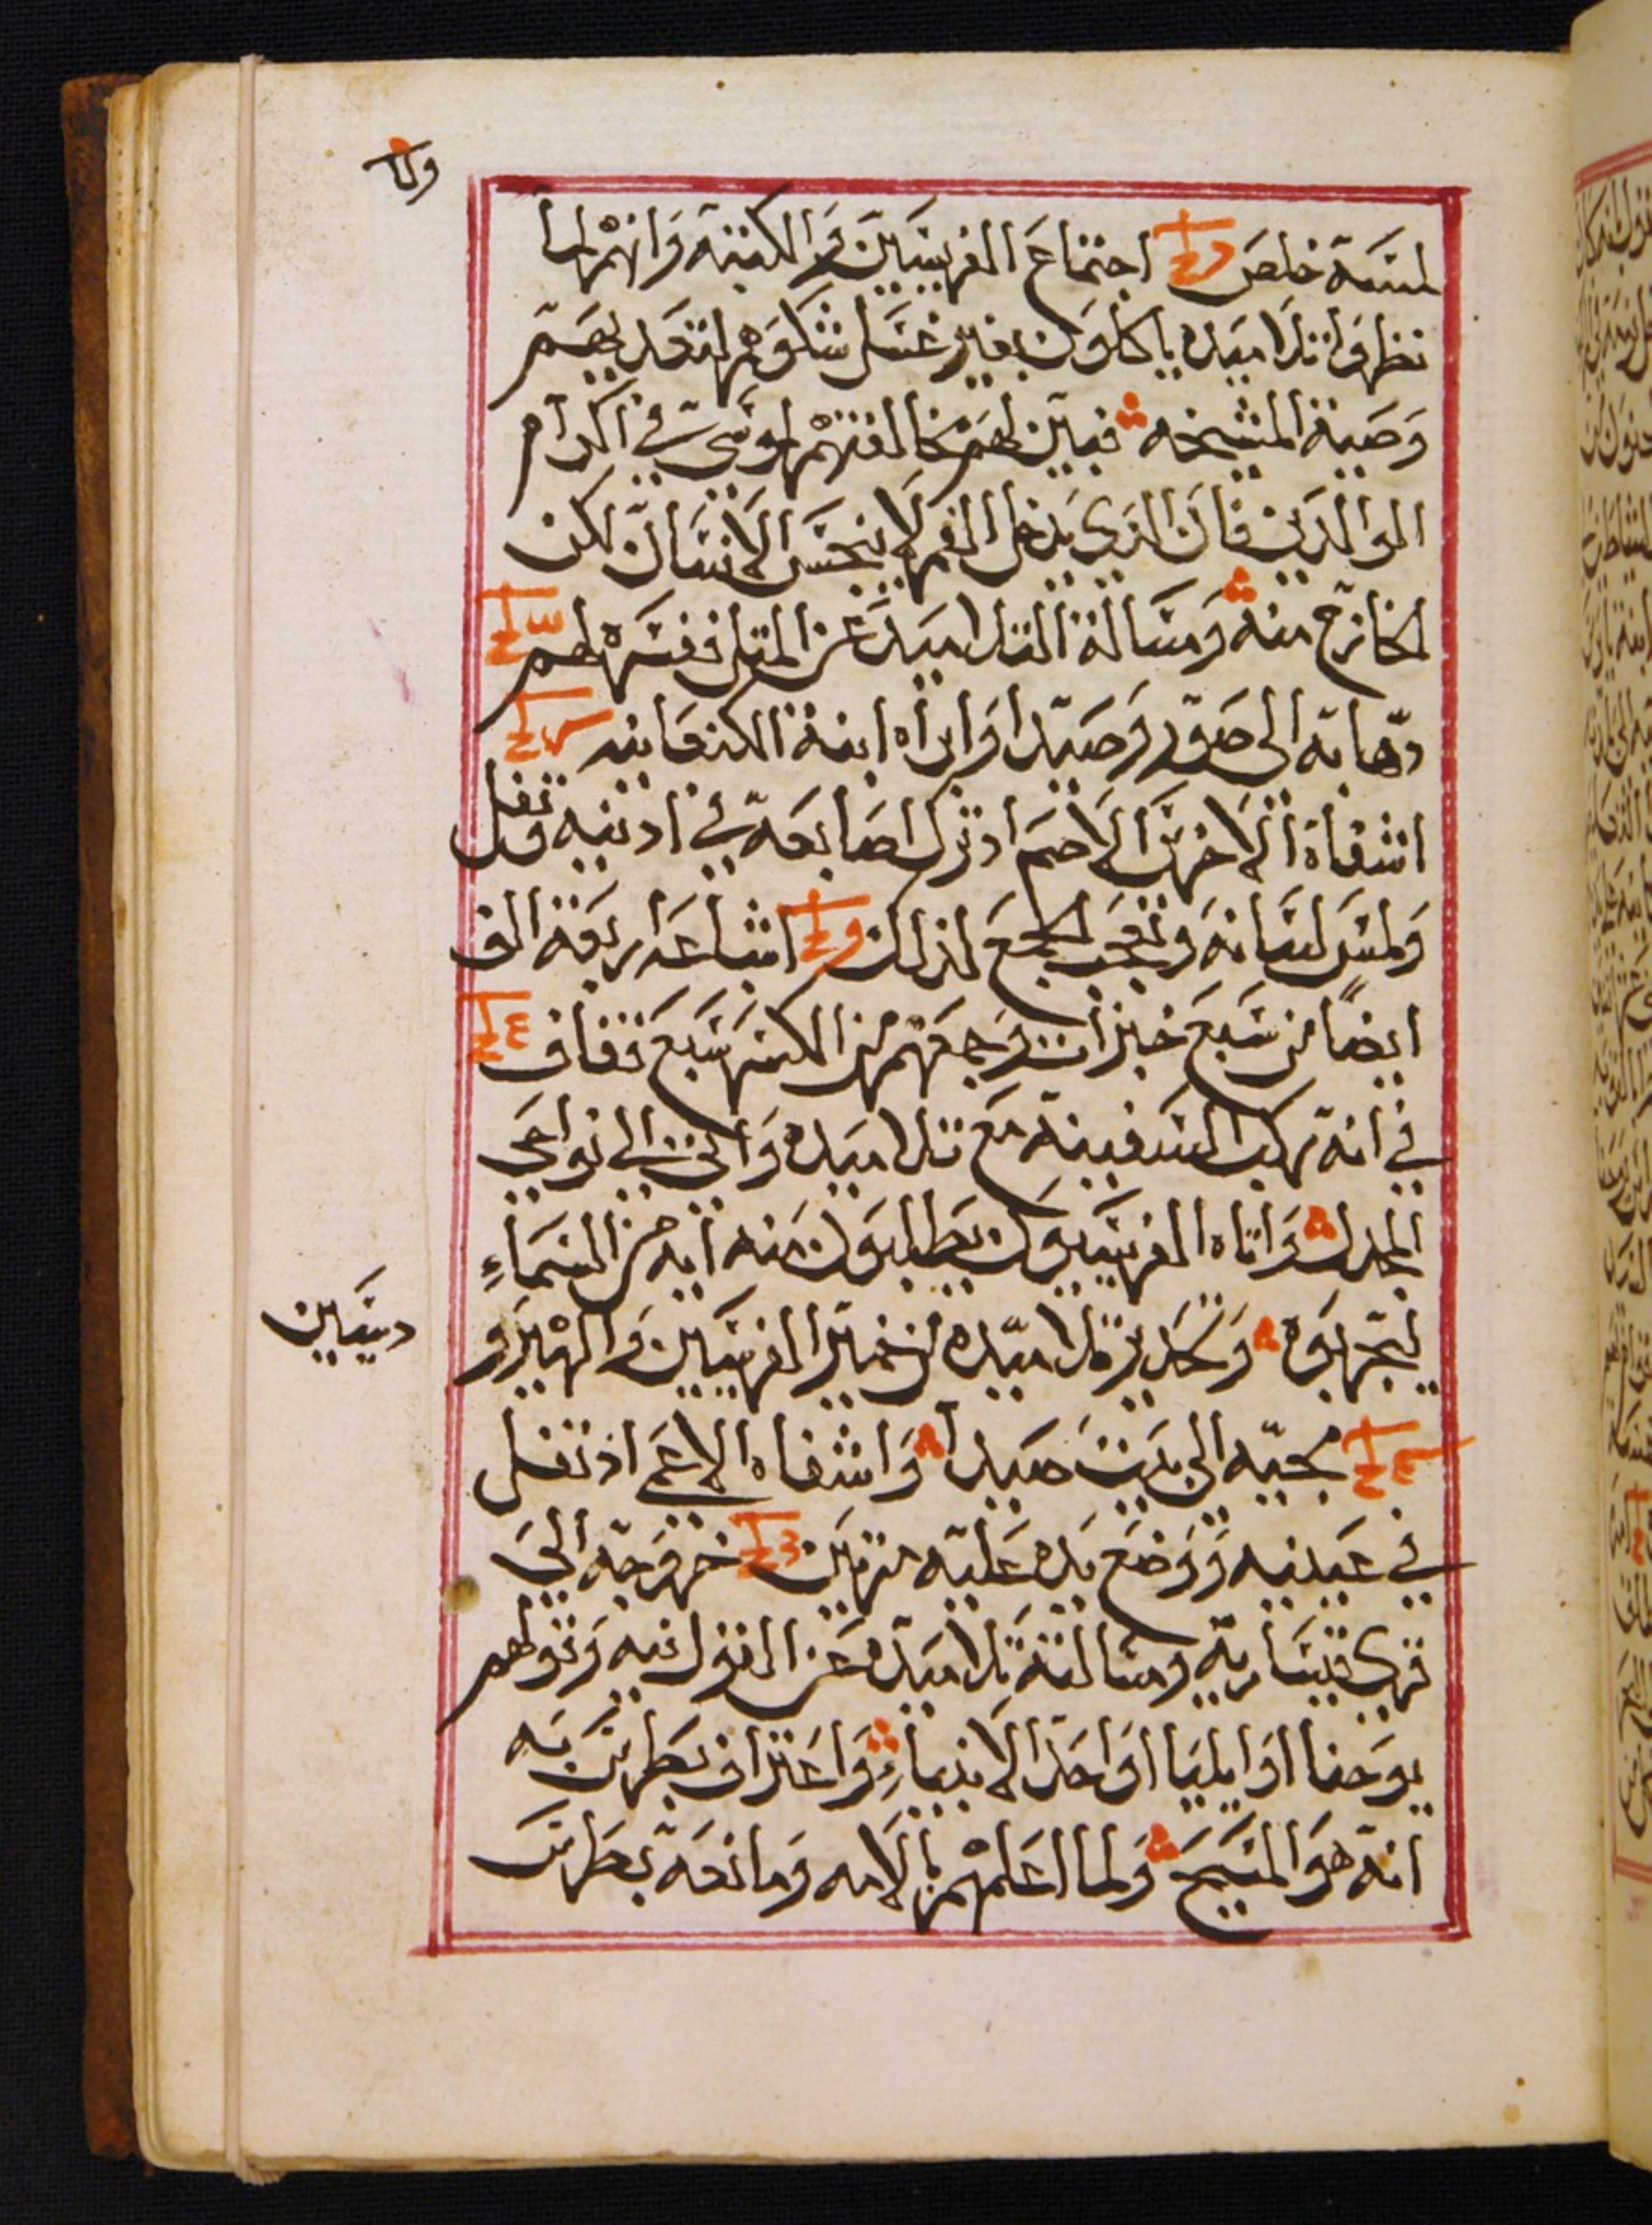 لمسه خلص اجتماع الفريسيين والكتبه وانهم لما
نظروا تلاميده ياكلون بغير غسل شكوهم لتعديهم
وصية المشيخه فبين لهم مخالفتهم لموسى في اكرام
الوالدين فان الذي يدخل الفم لا ينجس الانسان لكن
الخارج منه ومسالة التلاميد عن المثل ففسره لهم
دهابه الى صور وصيدا وابراه ابنة الكنعانيه
اشفاة الاخرس الاصم اد ترك اصابعه في ادنيه وتفل
ولمس لسانه وتعجب الجمع لذلك اشباعه اربعة الف
ايضا من سبع خبزات وجمعهم من الكسر سبع قفاف
في انه ركب السفينه مع تلاميده واتى الى نواحي
المجدل واتاه الفريسيون يطلبون منه ايه من السماء
ليجربوه وتحديره تلاميده من خمير الفريسيين والهيرو
دسيين
مجيه الى بيت صيدا واشفاه الاعمى اذ تفل
في عينيه ووضع يده عليه مرتين خروجه الى
قرى قيساريه ومسالته تلاميده عن القول فيه وقولهم
يوحنا او ايليا او احد الانبياء واعتراف بطرس به
انه هو المسيح ولما اعلمهم بالامه ومانعه بطرس